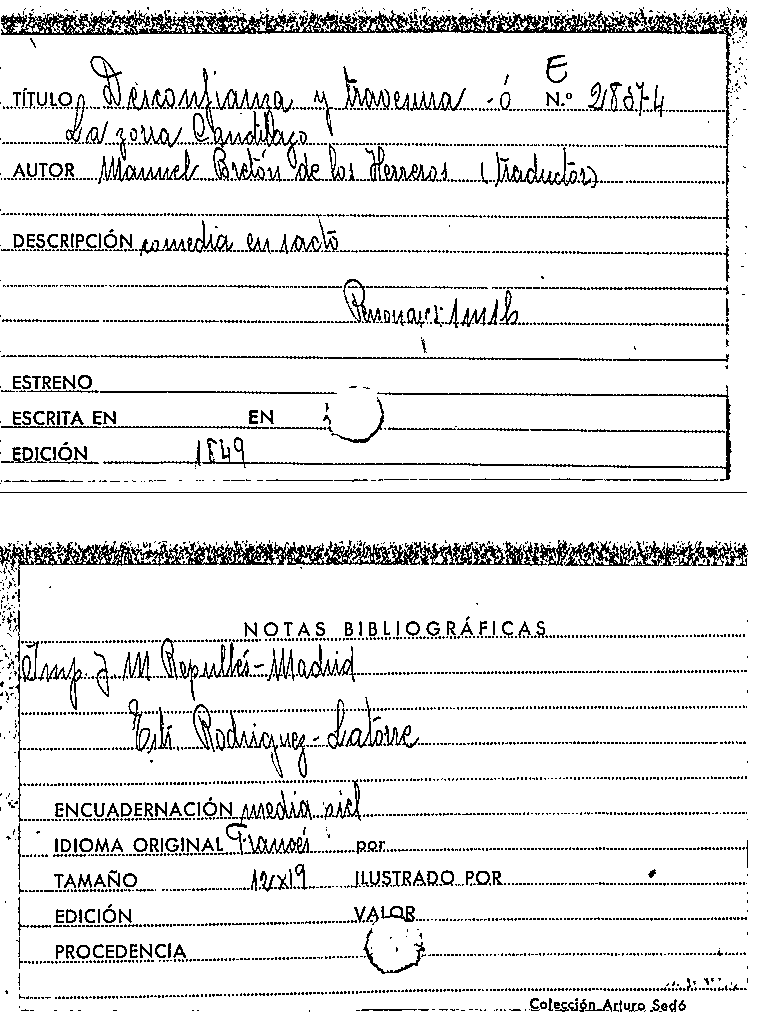 E
TÍTULO Desconfianza y travesura - ó N.º 21857-4
La zorra Candilazo
AUTOR Manuel Bretón de los Herreros (traductor)
DESCRIPCIÓN comedia en 1 acto
Personajes
ESTRENO
ESCRITA EN EN
EDICIÓN 1849
NOTAS BIBLIOGRÁFICAS
Imp J M Repullés-Madrid
Rodriguez-Latorre
ENCUADERNACIÓN media piel
IDIOMA ORIGINAL Francés por
TAMAÑO 12x19 ILUSTRADO POR
EDICIÓN VALOR
PROCEDENCIA
Colección Arturo Sedó